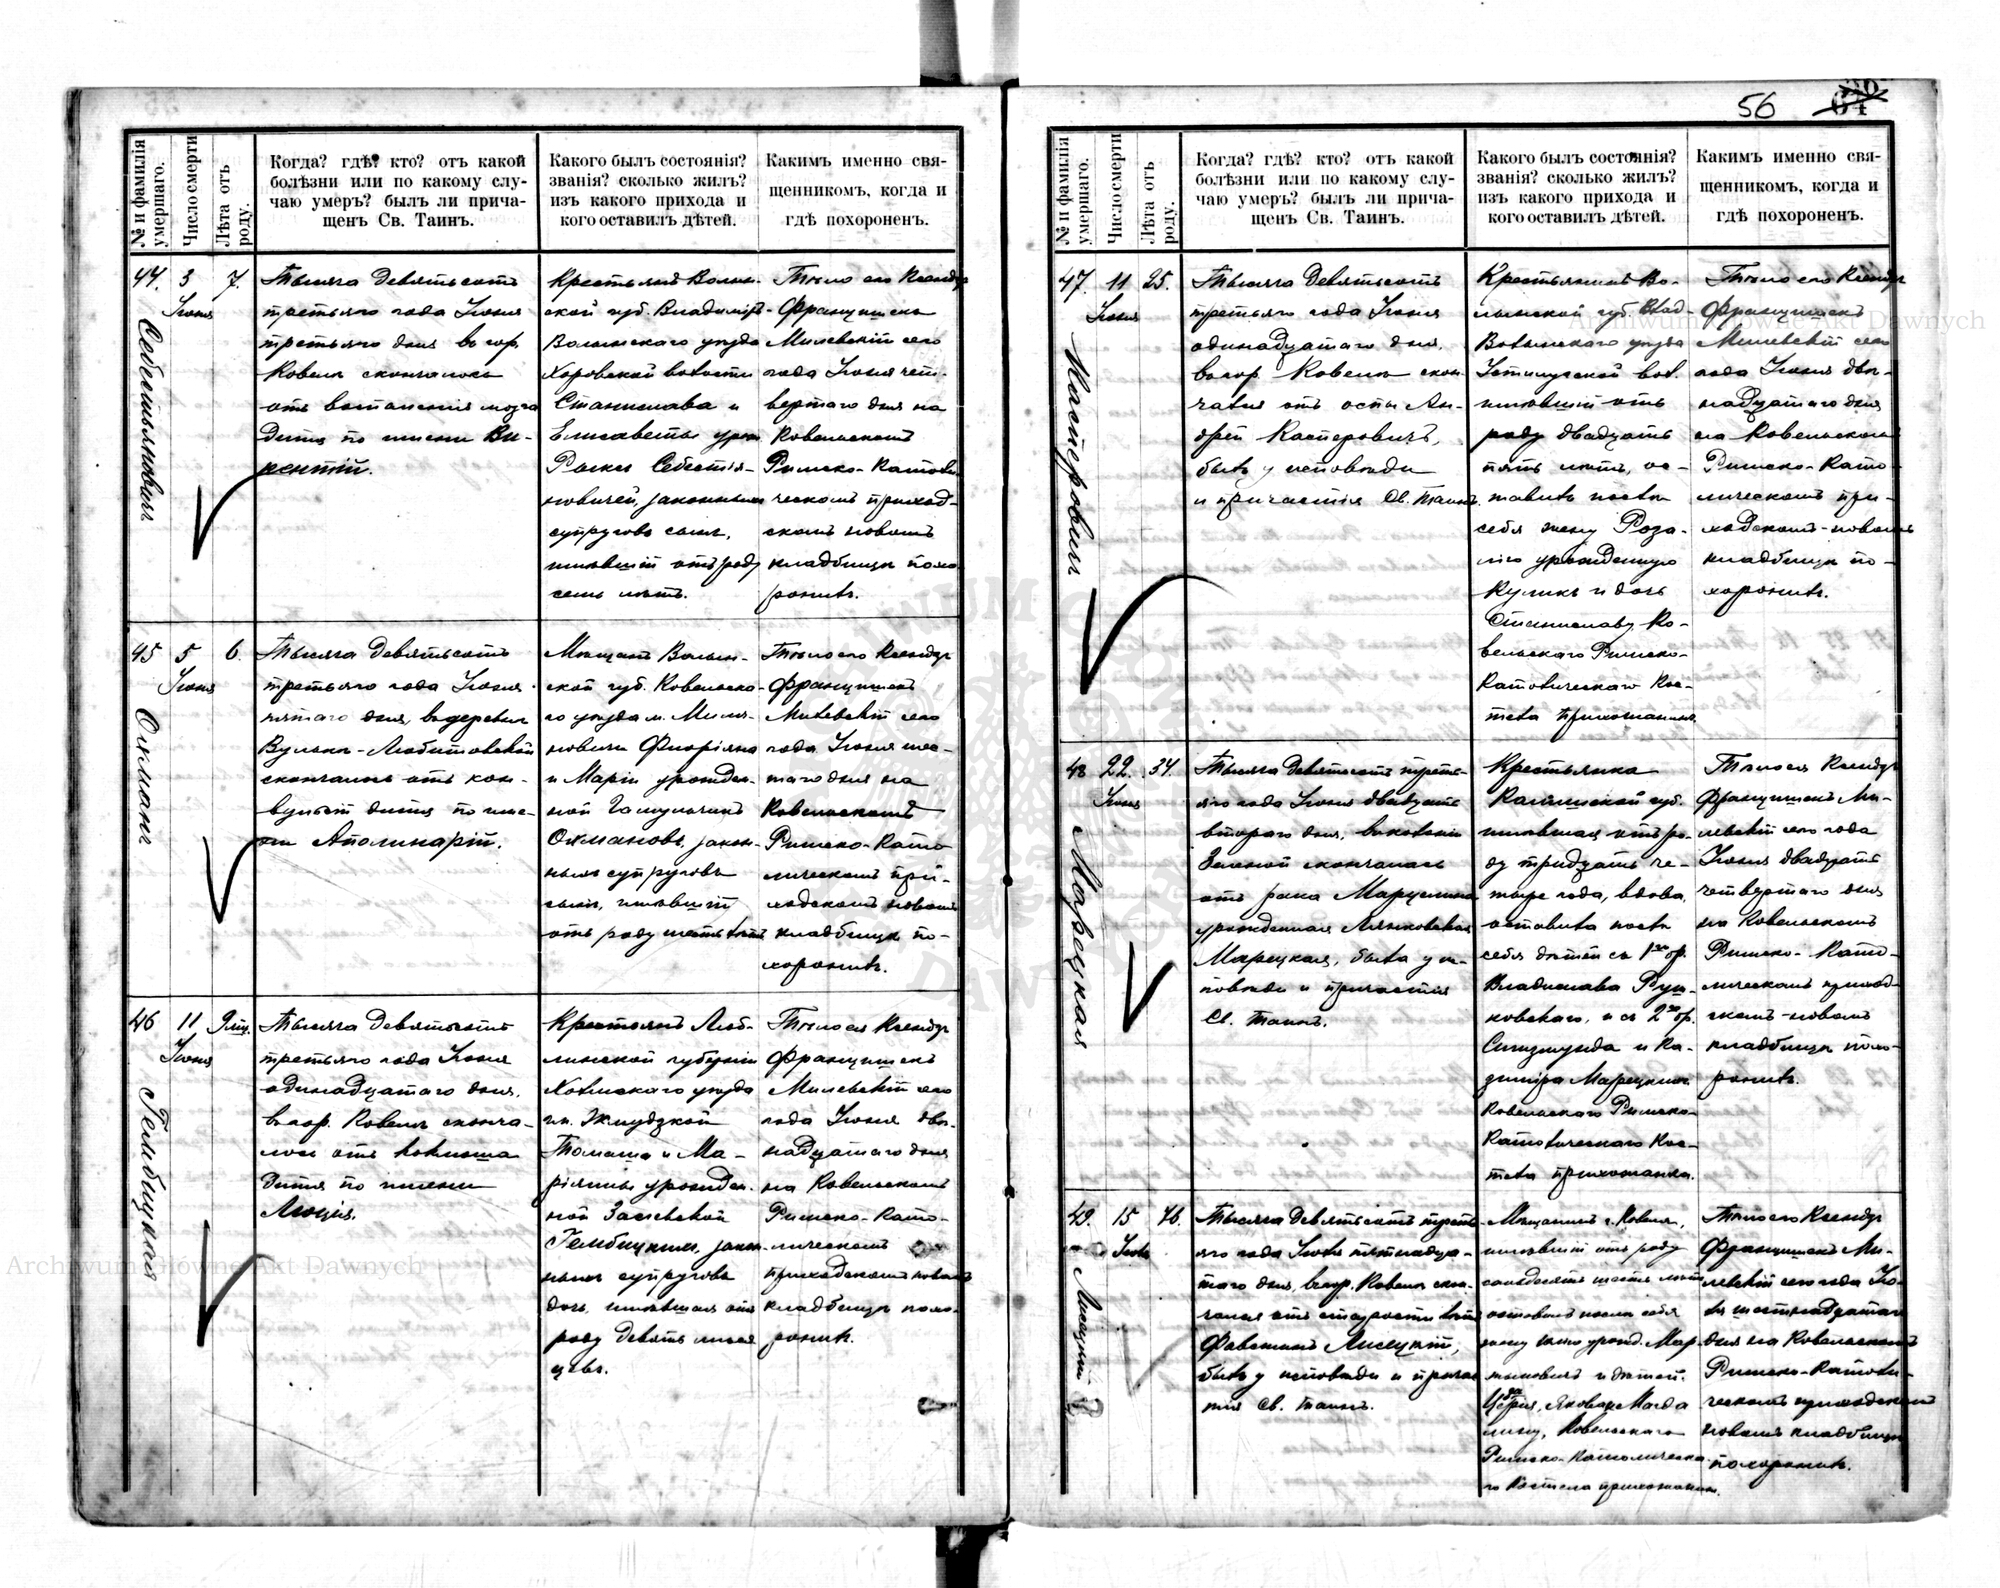 56
64
№ и фамилія умершаго.
Число смерти
Лѣта отъ роду.
Когда? гдѣ? кто? отъ какой
болѣзни или по какому слу-
чаю умеръ? былъ ли прича-
щенъ Св. Таинъ.
Какого былъ состоянія?
званія? сколько жилъ?
изъ какого прихода и
кого оставилъ дѣтей.
Какимъ именно свя-
щенникомъ, когда и
гдѣ похороненъ.
44.
3
Іюня
7.
Себестьяновичъ
Тысяча Девятьсотъ
третьяго года Іюня
третьяго дня въ гор.
Ковель скончалось
отъ воспаленія мозга
Дитя по имени Ви-
кентій.
Крестьянъ Волын-
ской губ. Владимір-
Волынскаго уѣзда
Хоровской волости
Станислава и
Елисаветы урож.
Себестія-
новичей, законныхъ
супруговъ сынъ,
имѣвшій отъ роду
семь лѣтъ.
Тѣло его Ксендзъ
Францишекъ
Милевскій сего
года Іюня чет-
вертаго дня на
Ковельскомъ
Римско-Католи-
ческомъ приход-
скомъ новомъ
кладбищѣ похо-
ронилъ.
45
5
Іюня
6.
Охманъ
Тысяча Девятьсотъ
третьяго года Іюня
пятаго дня, въ деревнѣ
Вулька-Любитовской
скончалось отъ кон-
вульсій дитя по име-
ни Аполинарій.
Мѣщанъ Волын-
ской губ. Ковельска-
го уѣзда м. Миля-
новичи Флоріяна
и Маріи урожден-
ной
Охмановъ, закон-
ныхъ супруговъ
сынъ, имѣвшій
отъ роду шесть лѣтъ
Тѣло его Ксендзъ
Францишекъ
Милевскій сего
года Іюня шес-
таго дня на
Ковельскомъ
Римско-Като-
лическомъ при-
ходскомъ новомъ
кладбищѣ по-
хоронилъ.
46
11
Іюня
9 мѣс.
Гембицкая
Тысяча Девятьсотъ
третьяго года Іюня
одинадцатаго дня,
въ гор. Ковелѣ сконча-
лось отъ коклюша
Дитя по имени
Люція.
Крестьянъ Люб-
линской губерніи
Холмскаго уѣзда
гм. Жмудзкой
Томаша и Ма-
ріянны урожден-
ной
Гембицкихъ, закон-
ныхъ супруговъ
дочь, имѣвшая отъ
роду девять мѣся-
цевъ.
Тѣло ея Ксендзъ
Францишекъ
Милевскій сего
года Іюня две-
надцатаго дня
на Ковельскомъ
Римско-Като-
лическомъ
приходскомъ новомъ
кладбищѣ похо-
ронилъ.
№ и фамилія умершаго.
Число смерти
Лѣта отъ роду.
Когда? гдѣ? кто? отъ какой
болѣзни или по какому слу-
чаю умеръ? былъ ли прича-
щенъ Св. Таинъ.
Какого былъ состоянія?
званія? сколько жилъ?
изъ какого прихода и
кого оставилъ дѣтей.
Какимъ именно свя-
щенникомъ, когда и
гдѣ похороненъ.
47.
11
Іюня
25.
Касперовичъ
Тысяча Девятьсотъ
третьяго года Іюня
одинадцатаго дня,
въ гор. Ковелѣ скон-
чался отъ оспы Ан-
дрей Касперовичъ,
былъ у исповѣди
и причастія Св. Таинъ.
Крестьянинъ Во-
лынской губ. Влад-
Волынскаго уѣзда
Устилугской вол.
имѣвшій отъ
роду двадцать
пять лѣтъ, ос-
тавилъ послѣ
себя жену Роза-
лію урожденную
Куликъ и дочь
Станиславу Ко-
вельскаго Римско-
Католическаго Кос-
тела прихожанинъ
Тѣло его Ксендзъ
Францишекъ
Милевскій сего
года Іюня две-
надцатаго дня
на Ковельскомъ
Римско-Като-
лическомъ при-
ходскомъ-новомъ
кладбищѣ по-
хоронилъ.
48
22.
Іюня
34.
Марецкая
Тысяча Девятьсотъ треть-
яго года Іюня двадцать
втораго дня,
Зеленой скончалась
отъ рака
урожденная Лянковская
Марецкая, была у ис-
повѣди и причастія
Св. Таинъ.
Крестьянка
губ.
имѣвшая отъ ро-
ду тридцать че-
тыре года, вдова,
оставила послѣ
себя дѣтей съ 1го бр.
Владислава
ковскаго, и съ 2го бр.
Сигизмунда и Ка-
зиміра Марецкихъ
Ковельскаго Римско-
Католическаго Кос-
тела прихожанка.
Тѣло ея Ксендзъ
Францишекъ Ми-
левскій сего года
Іюня двадцать
четвертаго дня
на Ковельскомъ
Римско-Като-
лическомъ приход-
скомъ-новомъ
кладбищѣ похо-
ронилъ.
49.
15
Іюля
76.
Лисецкій
Тысяча Девятьсотъ треть-
яго года Іюля пятнадца-
таго дня, въ гор. Ковелѣ скон-
чался отъ старости лѣтъ
Фавстинъ Лисецкій,
былъ у исповѣди и причас-
тія Св. Таинъ.
Мѣщанинъ г. Ковеля,
имѣвшій отъ роду
семьдесятъ шесть лѣтъ
оставилъ послѣ себя
жену урожд. Мар-
и дѣтей:
Якова и Магда
лину, Ковельскаго
Римско-Католическа-
го Костела прихожанинъ.
Тѣло его Ксендзъ
Францишекъ Ми-
левскій сего года Ію-
ля шестнадцатаго
дня на Ковельскомъ
Римско-Католи-
ческомъ приходскомъ
новомъ кладбищѣ
похоронилъ.
Archiwum Główne Akt Dawnych
Archiwum Główne Akt Dawnych